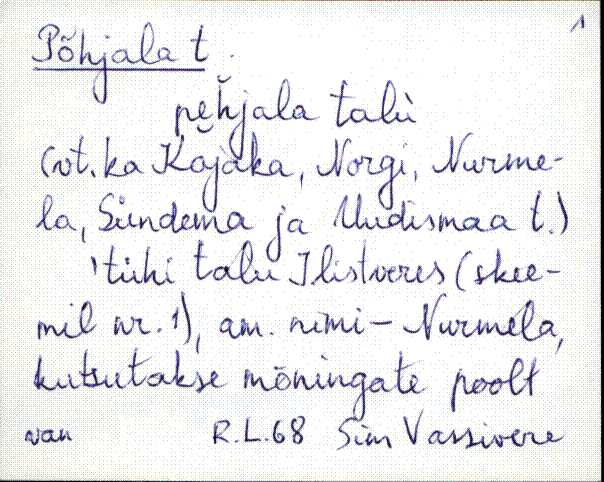 1
Põhjala t.
pe̬hjala talu
(vt. ka Kajaka, Norgi, Nurme-
la, Sündema ja Uudismaa t.)
'tühi talu Ilistveres (skee-
mil nr. 1), am. nimi – Nurmela,
kutsutakse mõningate poolt
van R.L.68 Sim Vassivere